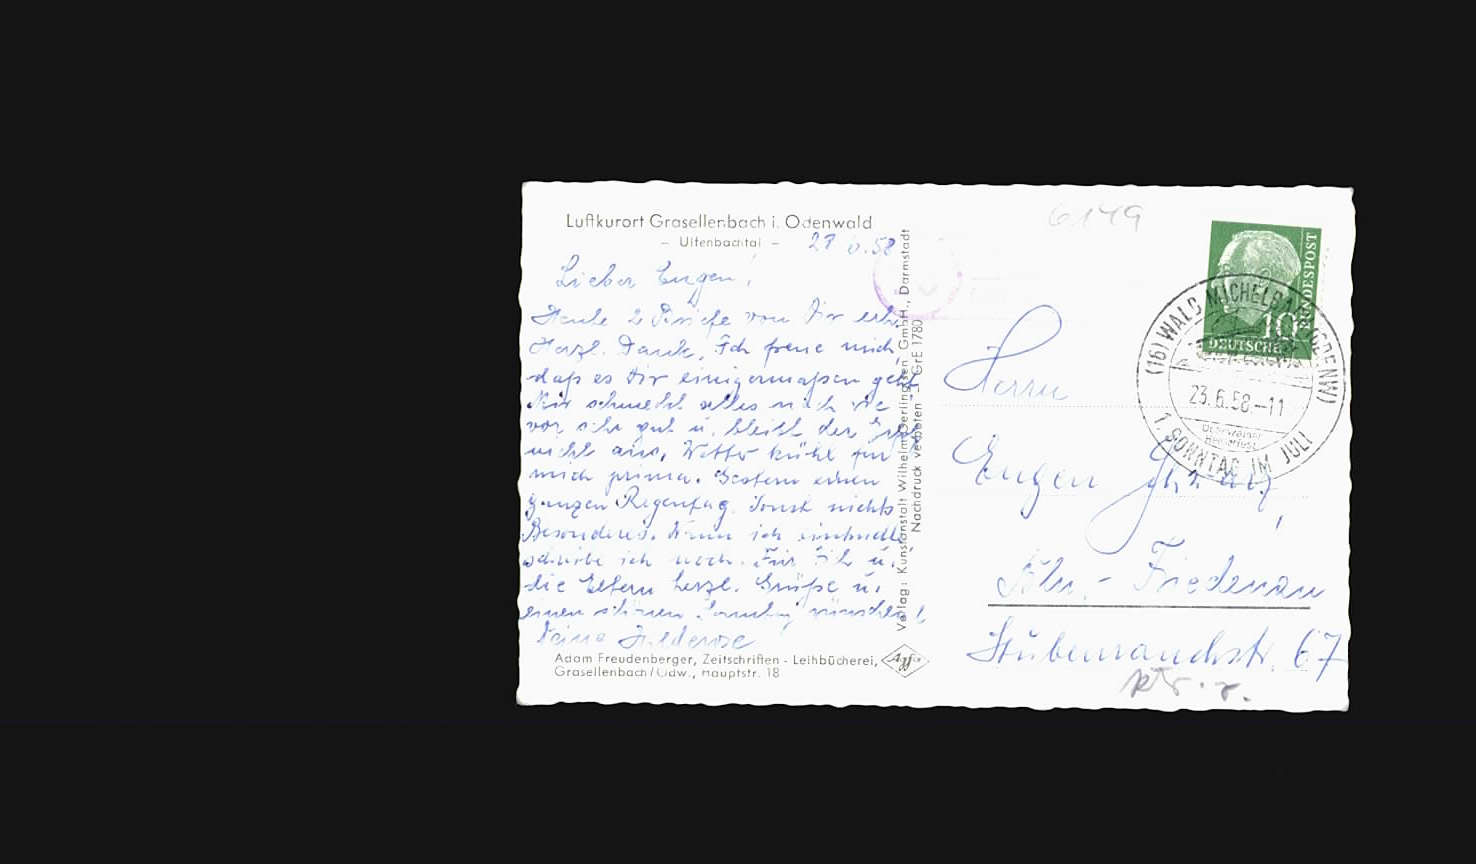 Luftkurort Grasellenbach i. Odenwald
– Ulfenbachtal –
Lieber Eugen!
Heute 2 Briefe von Dir erh.
Herzl. Dank. Ich freue mich,
daß es Dir einigermaßen geht.
Mir schmeckt alles nach wie
vor sehr gut u. bleibt der
nicht aus. Wetter kühl für
mich prima. Gestern einen
ganzen Regentag. Sonst nichts
Besonderes. Wenn ich
schreibe ich noch. Für Dich u.
die Eltern herzl. Grüße u.
einen schönen Sonntag wünscht
Deine
Adam Freudenberger, Zeitschriften - Leihbücherei,
Grasellenbach/Odw., Hauptstr. 18
Agfa
Verlag: Kunstanstalt Wilhelm Gerlingsen GmbH., Darmstadt
Nachdruck verboten - GrE 1780
6.149
DEUTSCHE BUNDESPOST
10
(16) WALD MICHELBACH (ODENW)
23.6.58.-11
1. SONNTAG IM JULI
Herrn
Eugen
Bln.- Friedenau
Stubenrauchstr. 67